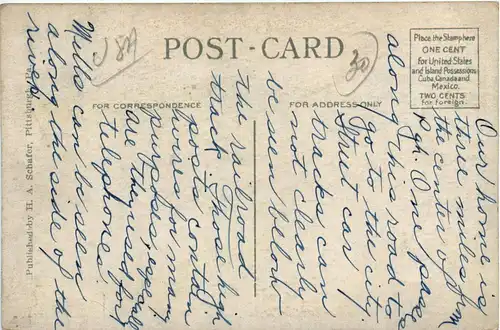 POST-CARD
FOR CORRESPONDENCE
FOR ADDRESS ONLY
Place the Stamp here
ONE CENT
for United States
and Island Possessions
Cuba, Canada and
Mexico.
TWO CENTS
for Foreign.
30
Our home is
three miles from
the center of
Pgh. One pass
along this road to
go to the city.
Street car
tracks can
not clearly
be seen below
the railroad
track. Those high
posts contain
wires for many
purposes, especially
are they used for
telephones.
Mills can be seen
along the side of the
river.
Published by H. A. Schafer, Pittsburg, Pa.